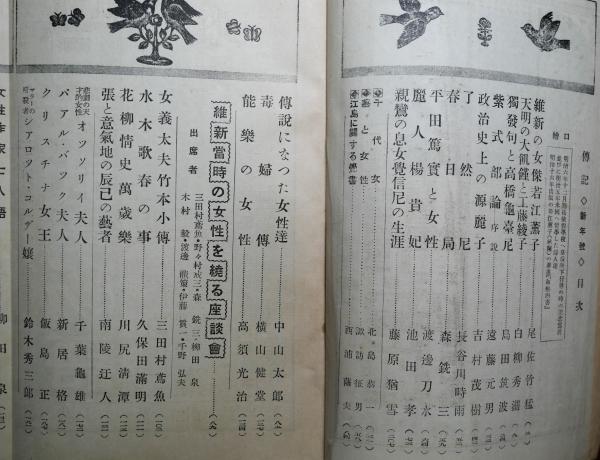 傳記 ◇ 新年號 ◇ 目次
口繪
維新の女傑若江薰子 尾佐竹猛
天明の大飢饉と工藤綾子 白柳秀湖
獨發句と高橋龜臺尼 島田筑波
紫式部論 序說 遠藤元男
政治史上の源麗子 吉村茂樹
了然尼 長谷川時雨
春日局 森銑三
平田篤實と女性 渡邊刀水
麗人楊貴妃 池田孝
親鸞の息女覺信尼の生涯 藤原猶雪
千代女 北島恭一
畫と女性 諏訪征男
江島に關する覺書 西浦蘭夫
傳說になつた女性達 中山太郎
毒婦傳 橫山健堂
能樂の女性 高須光治
維新當時の女性を繞る座談會
出席者
三田村鳶魚・野々村戒三・森銑三・柳田泉
木村毅・渡邊
伊藤貫一・千野弘夫
女義太夫竹本小傳 三田村鳶魚
水木歌春の事 久保田滿明
花柳情史萬歲樂 川尻清潭
張と意氣地の辰巳の藝者 南陵迂人
悲劇の天才的女性 オツソリイ夫人 千葉龜雄
パアル・バツク夫人 新居格
クリスチナ女王 飯島正
マラーの暗殺者 シアロツト・コルデー孃 鈴木秀三郎
女性作家七人語 柳田泉